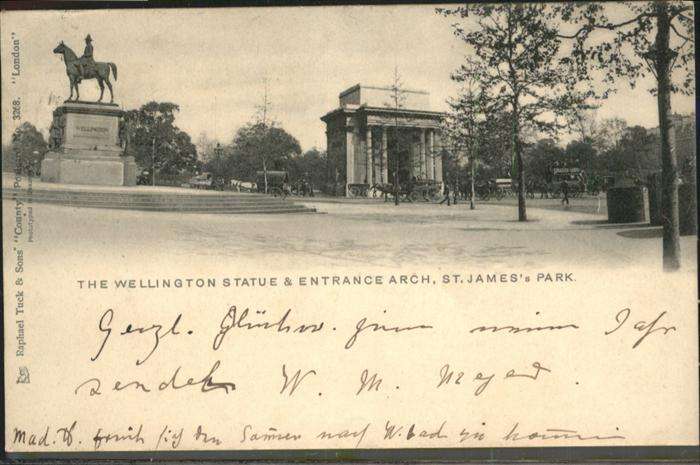 WELLINGTON
THE WELLINGTON STATUE & ENTRANCE ARCH, ST. JAMES's PARK.
Herzl. Glückw. zum neuen Jahr
sendet W. M.
Mad. freut sich den Sommer nach W.bad zu kommen
Raphael Tuck & Sons' "County" 3268. "London"